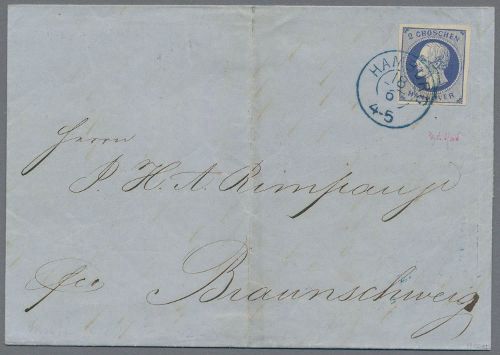 2 GROSCHEN
HANNOVER
HAMB
18
6
4-5
Herrn
P. H. A. Rimpau
Braunschweig